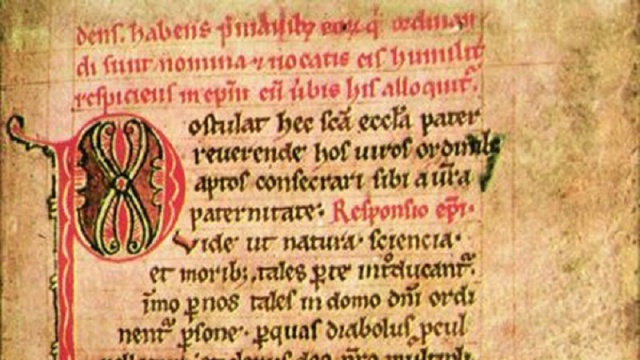 dens. habens p̄ manib; eoꝝ q̄ ordinan
di sunt nomina ⁊ uocatis eis humilit̄
respiciens in ep̄m cū ūbis his alloquit᷑.
Postulat hec sc̄a eccl̄a pater
reuerende hos uiros
aptos consecrari sibi a ūra
paternitate. Responsio ep̄i.
Vide ut natura. sciencia.
et morib; tales ꝑ te int̄ducant᷑.
īmo ꝑ nos tales in domo dn̄i ordi
nent᷑ ꝑsone. ꝑ quas diabolus peul